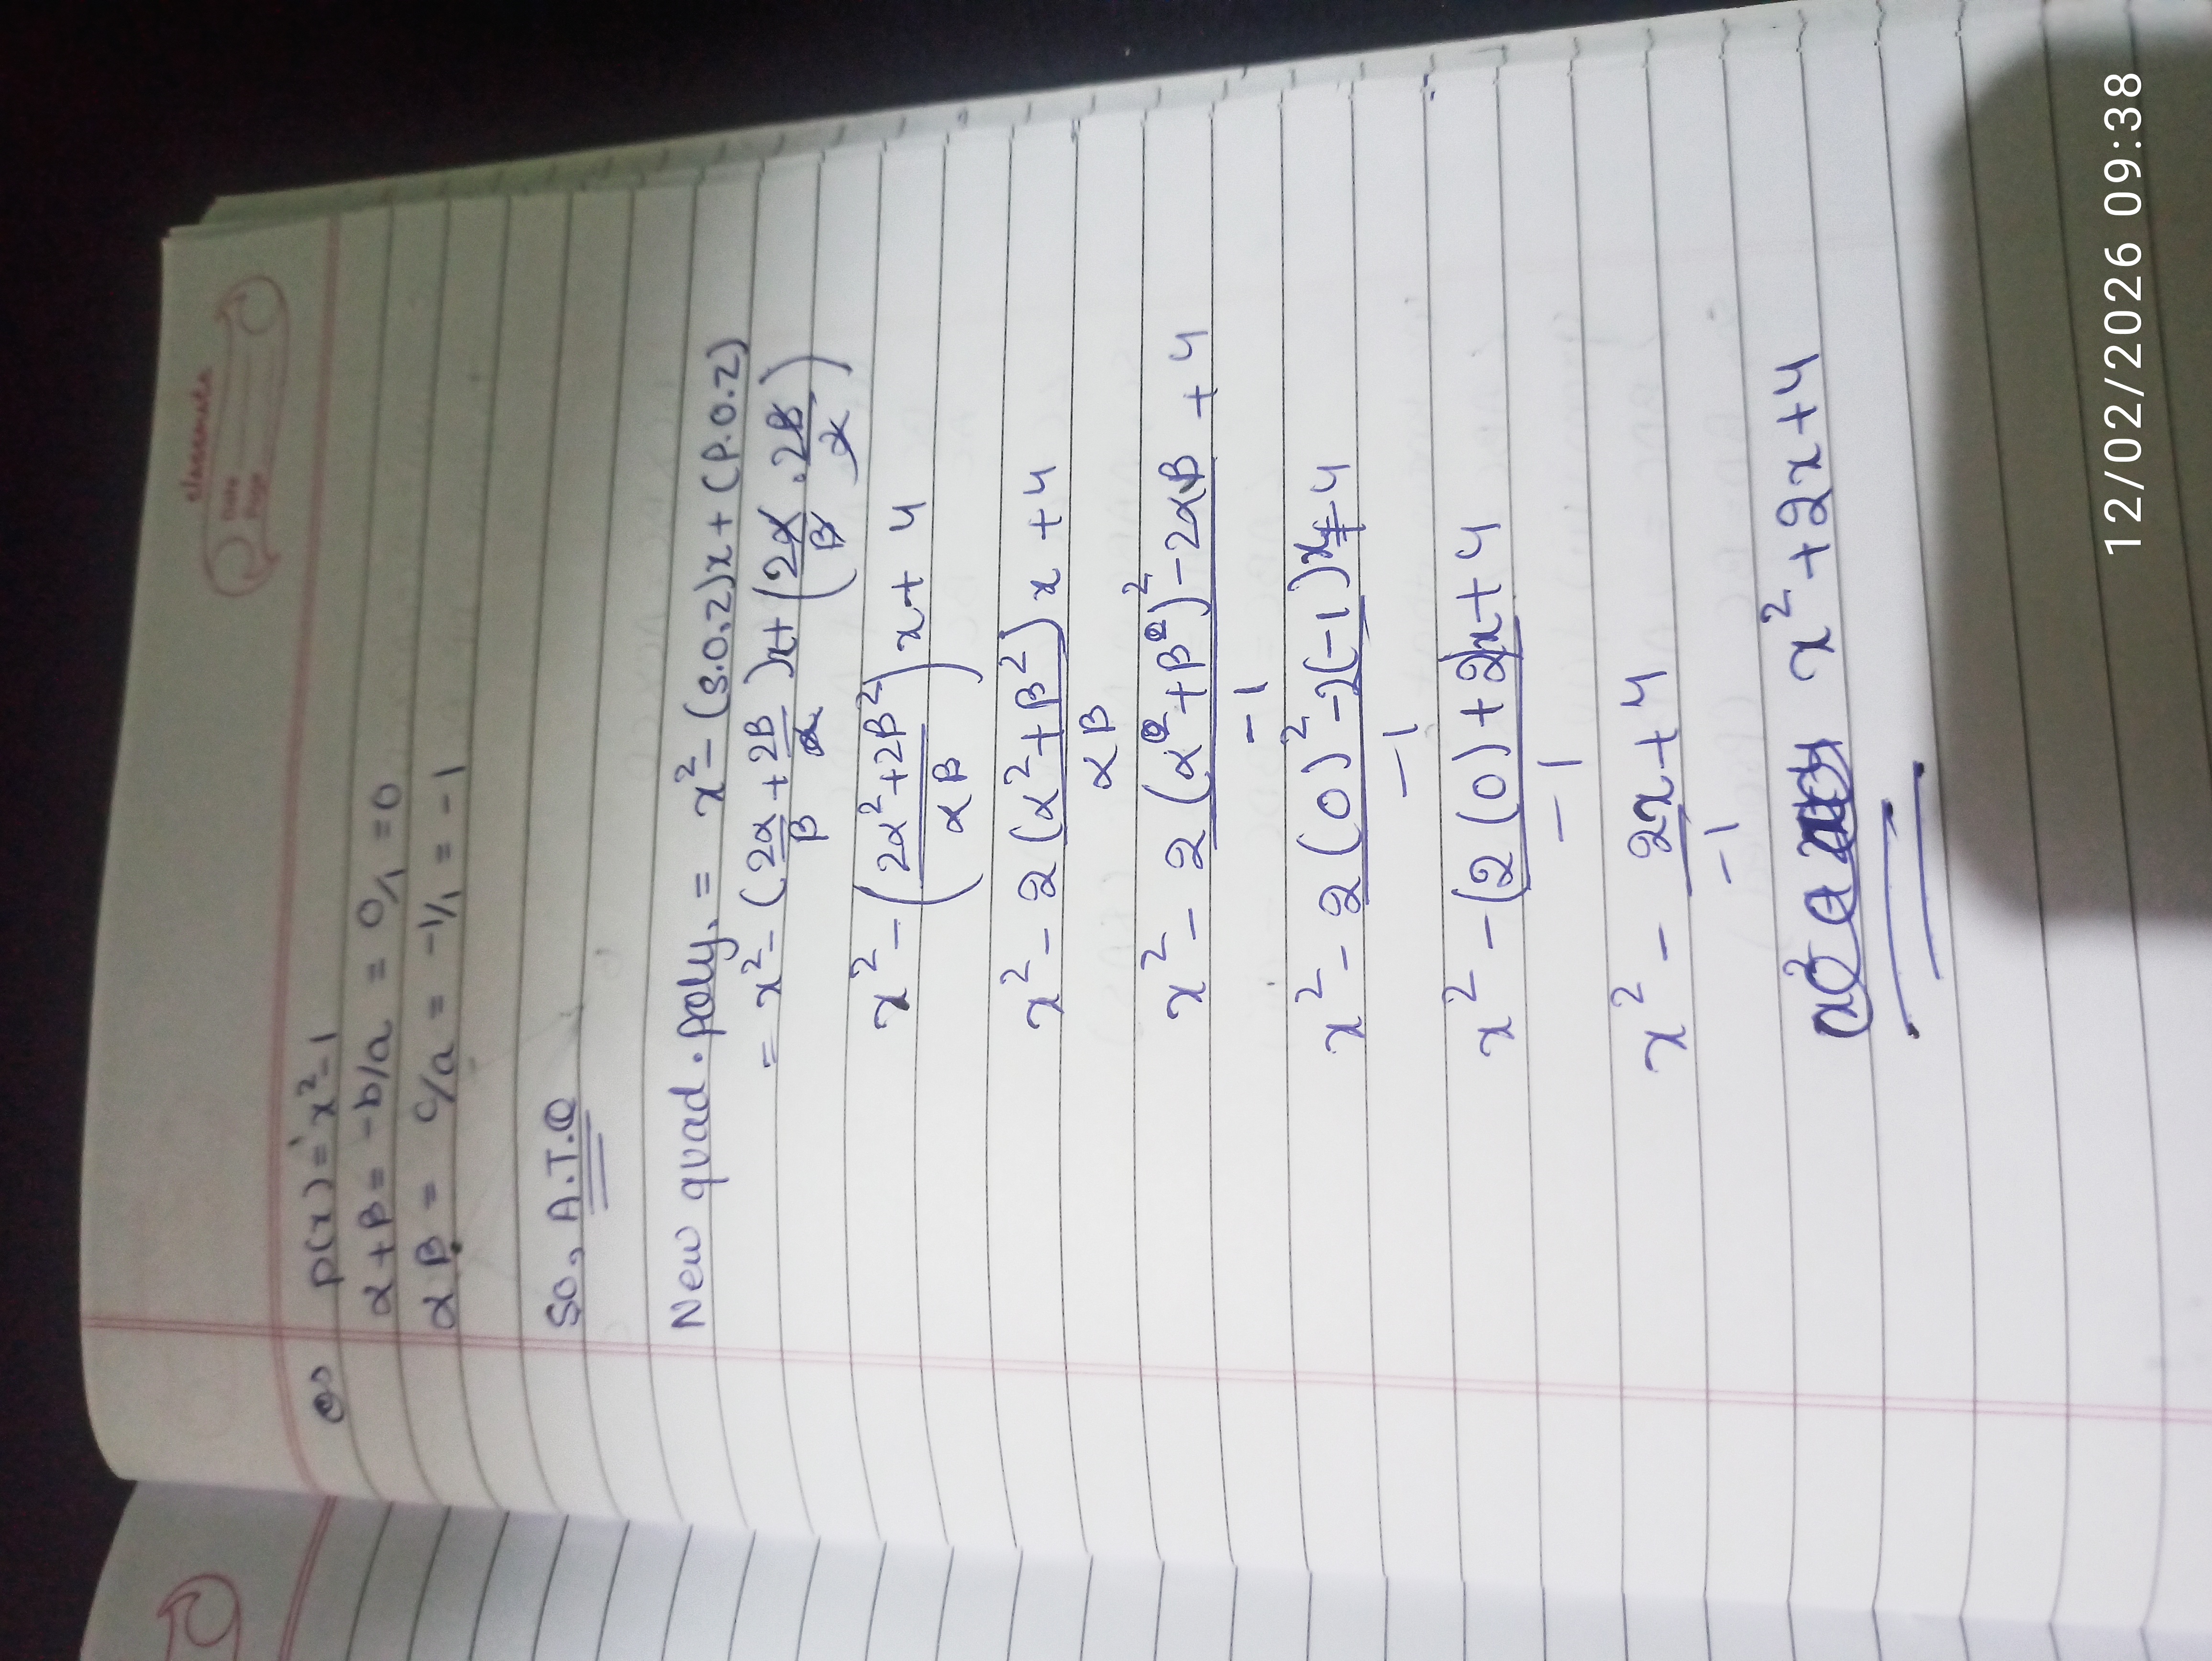 classmate
Date
Page
p(x) = x² - 1
α + β = -b/a = 0/1 = 0
αβ = c/a = -1/1 = -1
So, A.T.Q
New quad. poly. = x² - (S.O.Z)x + (P.O.Z)
= x² - (2α/β + 2β/α)x + (2α/β . 2β/α)
x² - (2α² + 2β² / αβ) x + 4
x² - 2(α² + β²)/αβ x + 4
x² - 2(α + β)² - 2αβ / -1 + 4
x² - 2(0)² - 2(-1)/-1 x + 4
x² - (2(0) + 2)/-1 x + 4
x² - 2x/-1 + 4
x² + 2x + 4
12/02/2026 09:38